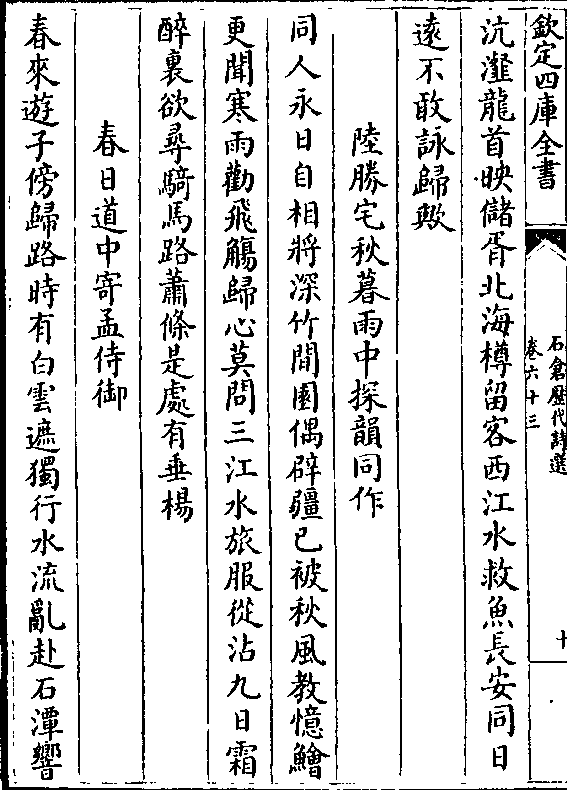 欽定四庫全書
石倉歴代詩選
卷六十三
十
沆瀣龍首映儲胥北海樽留客西江水救魚長安同日
遠不敢詠歸歟
陸勝宅秋暮雨中探韻同作
同人永日自相將深竹間園偶辟疆已被秋風教憶鱠
更聞寒雨勸飛觴歸心莫問三江水旅服從沾九日霜
醉裏欲尋騎馬路蕭條是處有垂楊
春日道中寄孟侍御
春來遊子傍歸路時有白雲遮獨行水流亂赴石潭響